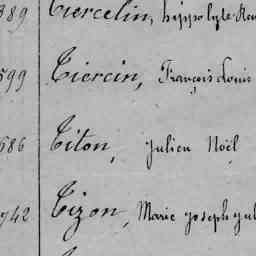 389 Tiercelin, hippolyte
599 Tiercin, François Louis
686 Titon, Julien Noël
942 Tizon, Marie Joseph